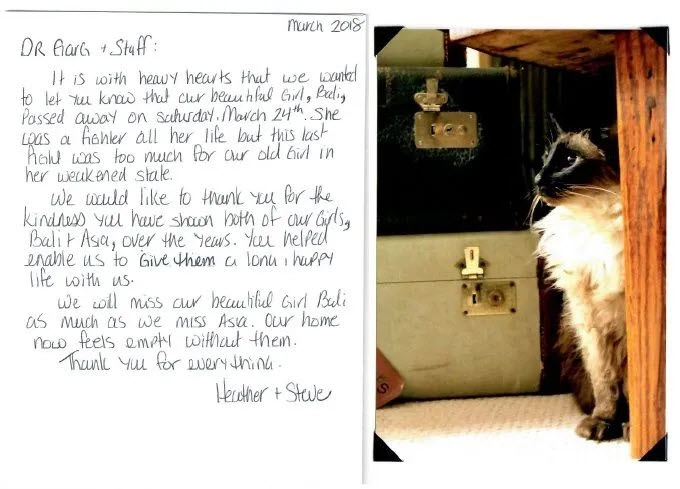 March 2018
DR Garg + Staff:
It is with heavy hearts that we wanted
to let you know that our beautiful Girl, Bali,
passed away on Saturday, March 24th. She
was a fighter all her life but this last
fight was too much for our old Girl in
her weakened state.
We would like to thank you for the
kindness you have shown both of our Girls,
Bali + Asia, over the years. You helped
enable us to Give them a long, happy
life with us.
We will miss our beautiful Girl Bali
as much as we miss Asia. Our home
now feels empty without them.
Thank you for everything.
Heather + Steve